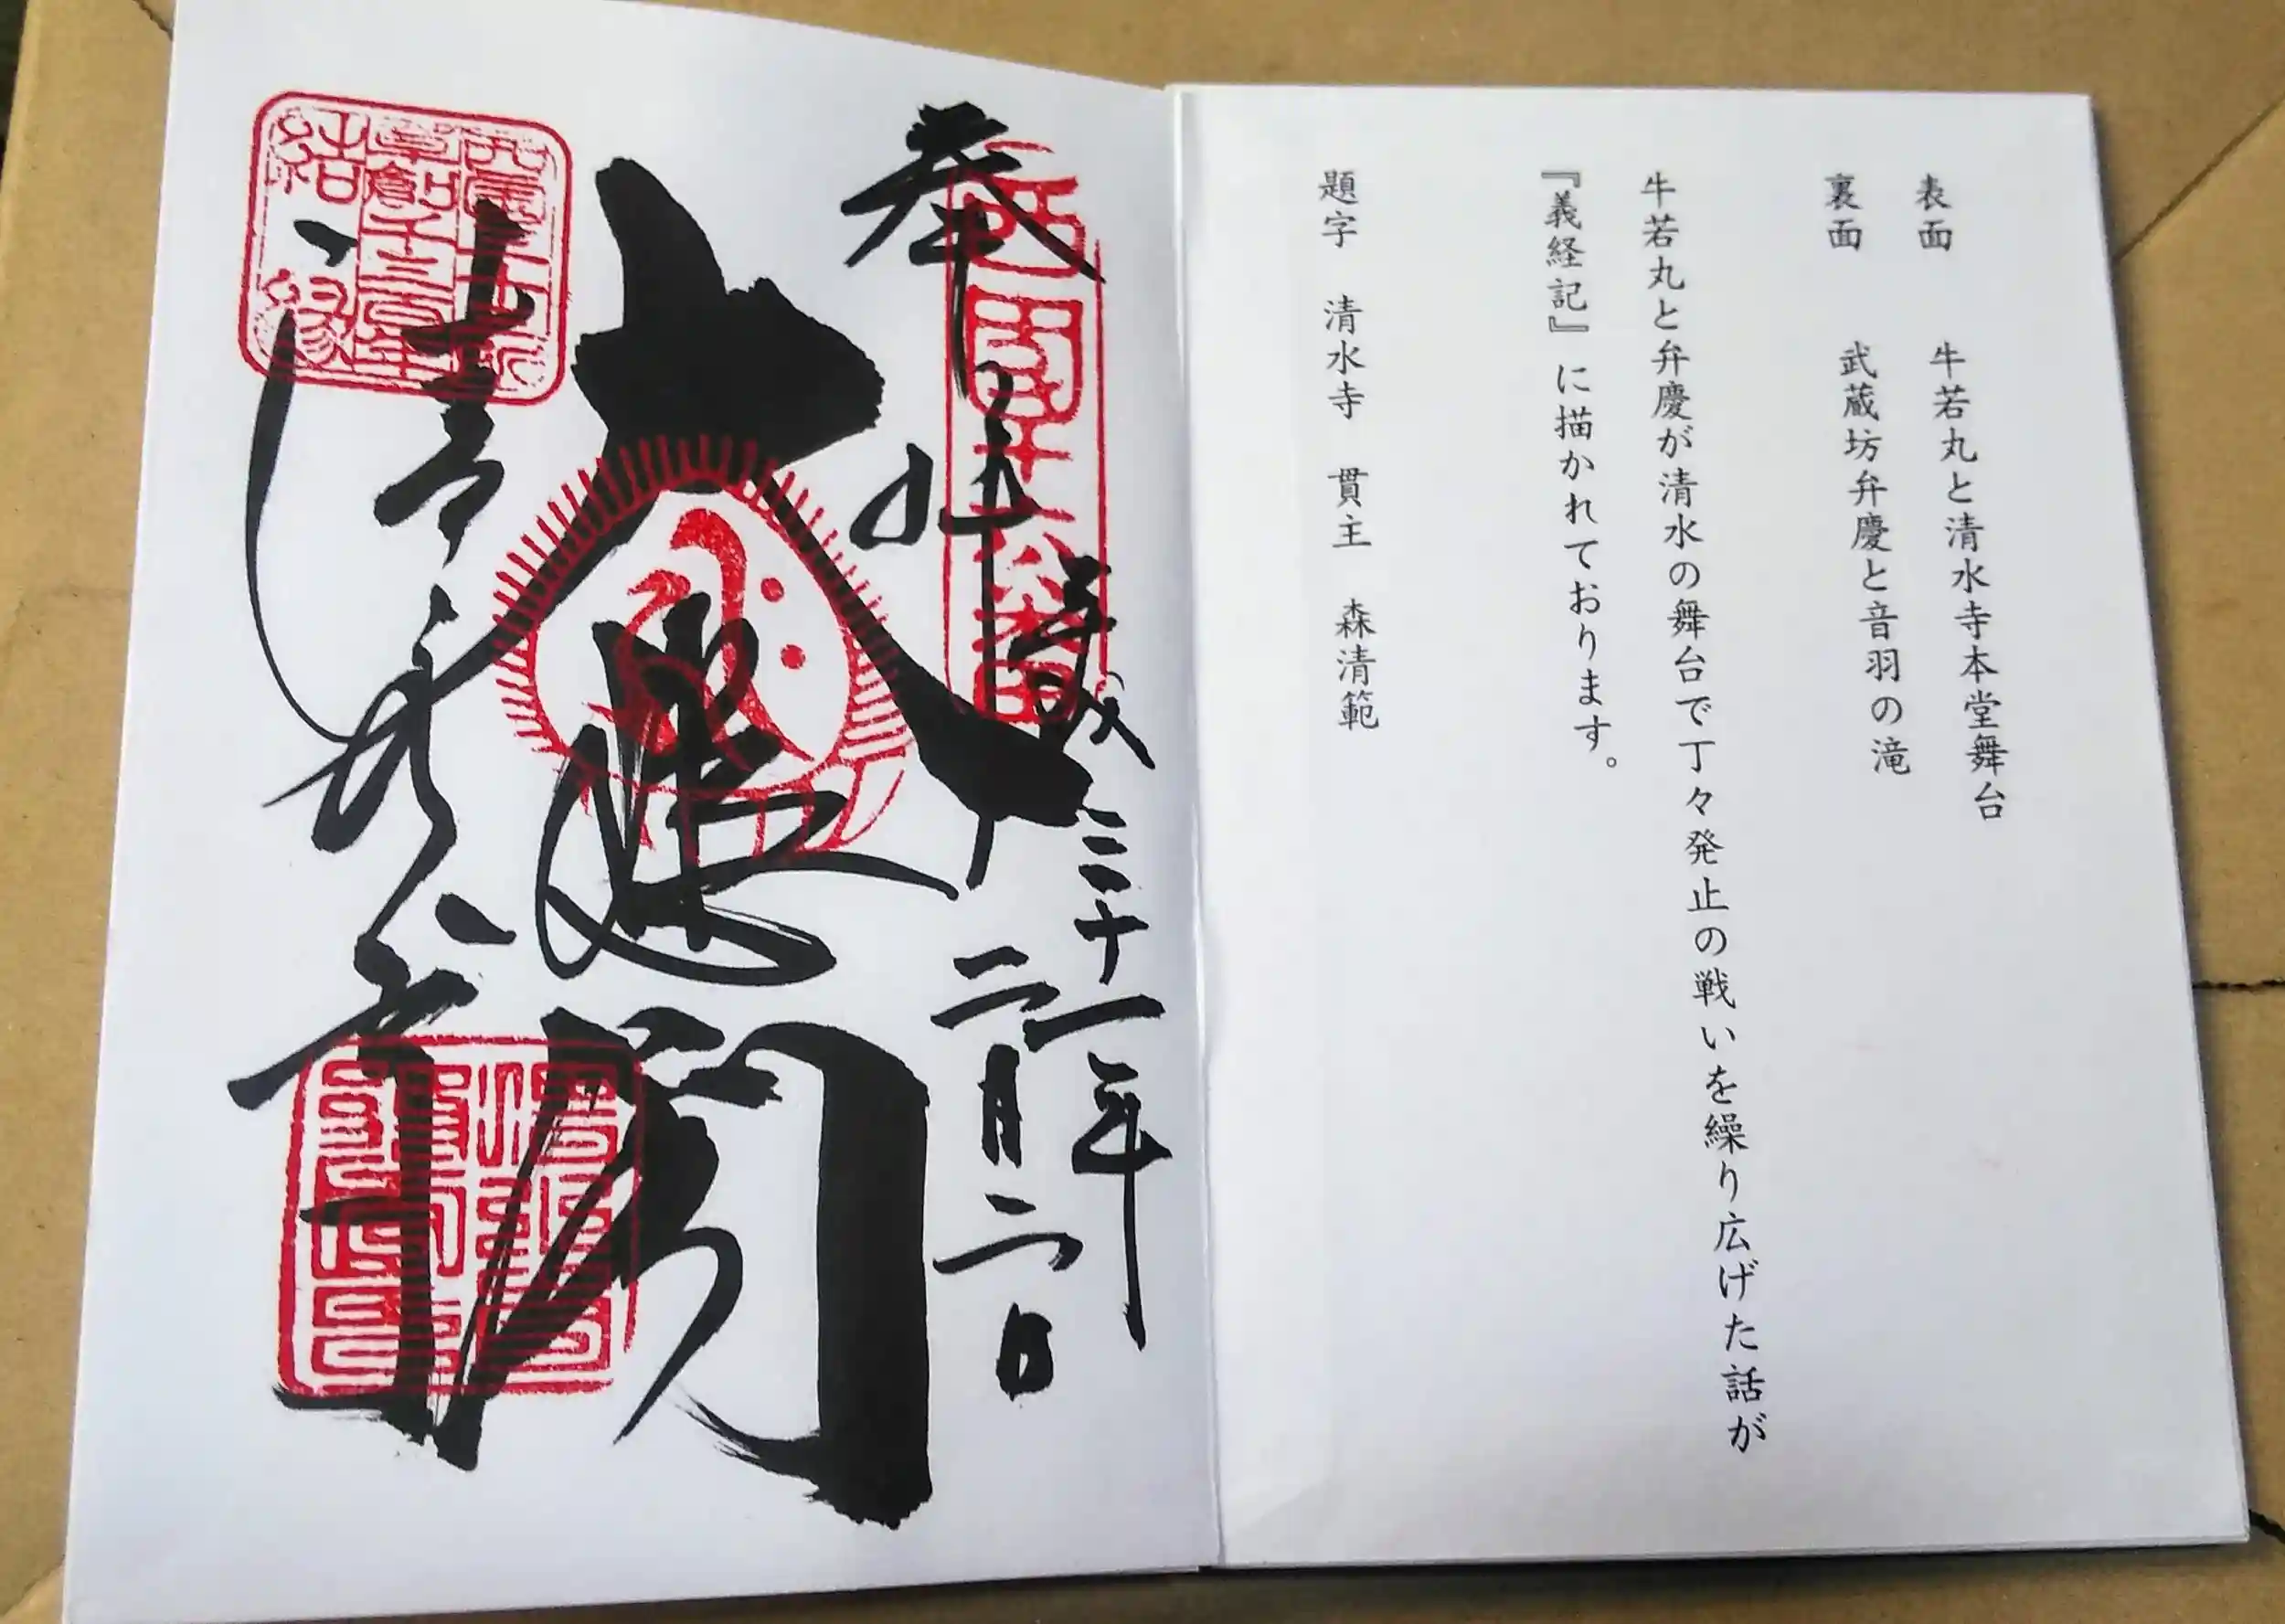 表面　牛若丸と清水寺本堂舞台
裏面　武蔵坊弁慶と音羽の滝
牛若丸と弁慶が清水の舞台で丁々発止の戦いを繰り広げた話が
『義経記』に描かれております。
題字　清水寺　貫主　森清範
奉拝
平成三十一年
二月二日
大悲閣
音羽山
清水寺
西国十六番
草創千三百年
結縁